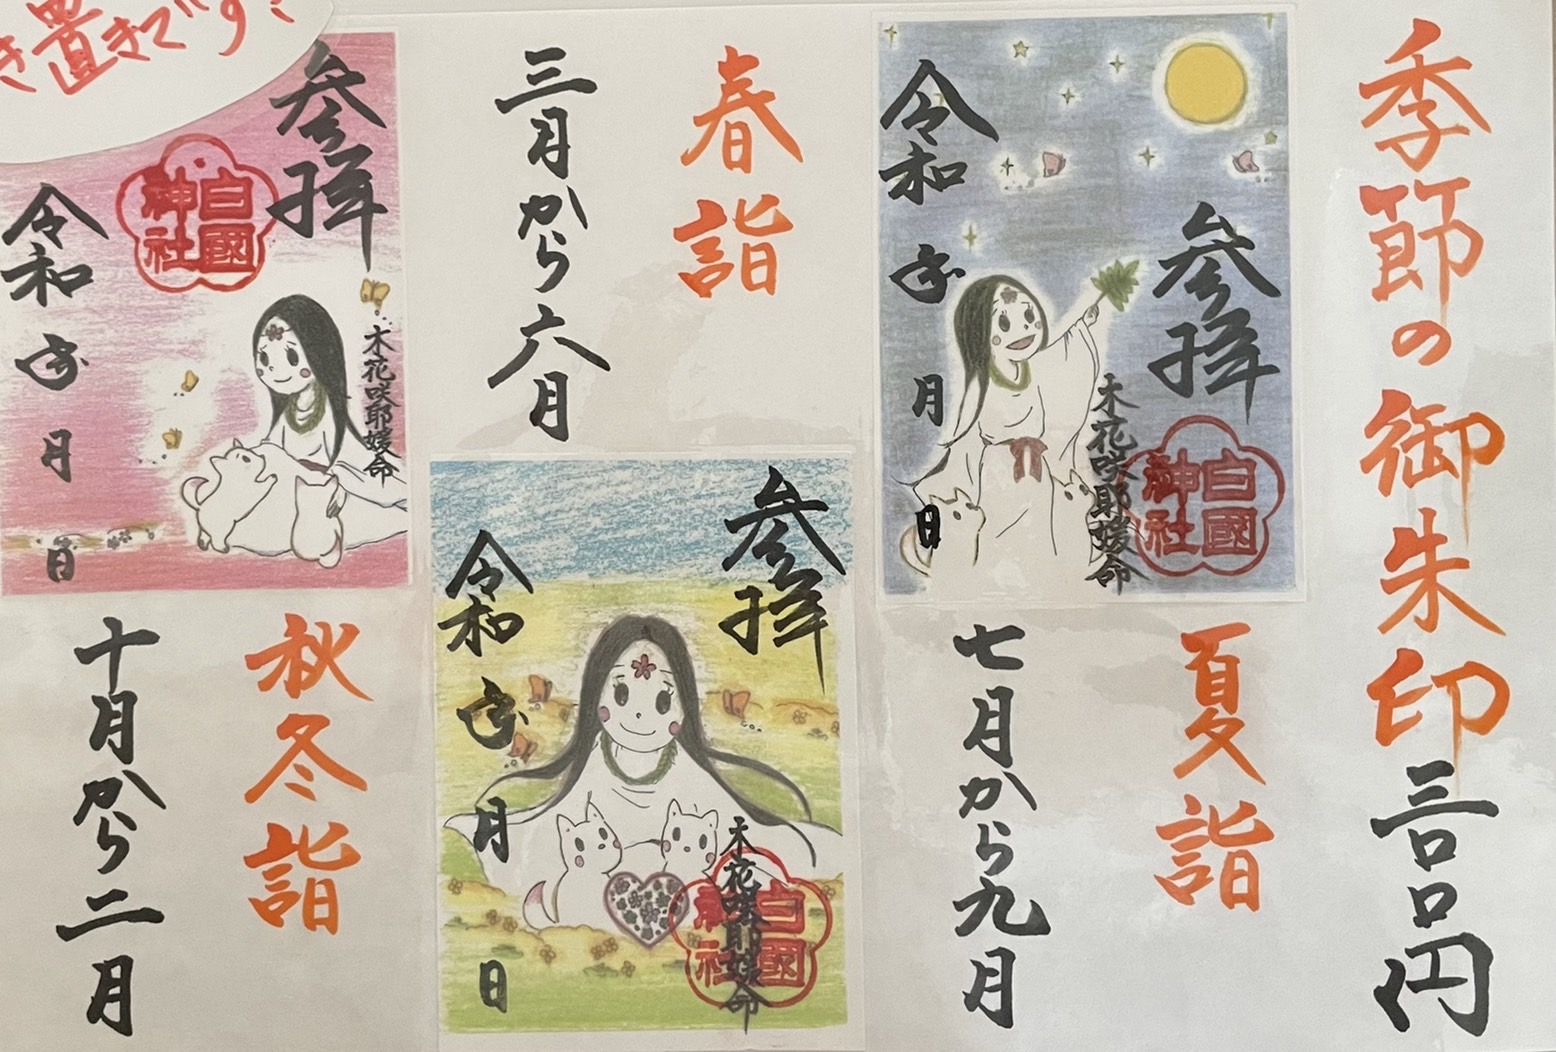 季節の御朱印三〇〇円
夏詣
七月から九月
令和 年 月 日
参拝
木花咲耶媛命
白國
神社
春詣
三月から六月
参拝
令和 年 月 日
木花咲耶媛命
白國
神社
秋冬詣
十月から二月
参拝
令和 年 月 日
木花咲耶媛命
白國
神社
き置きです